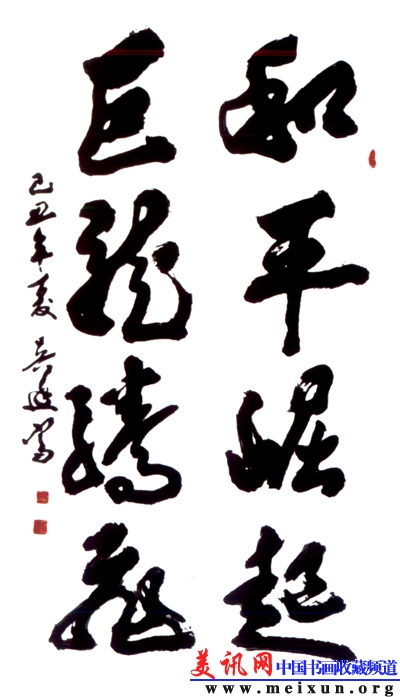 和平崛起
巨龍騰飛
己丑年夏
美讯网 中国书画收藏频道
www.meixun.org